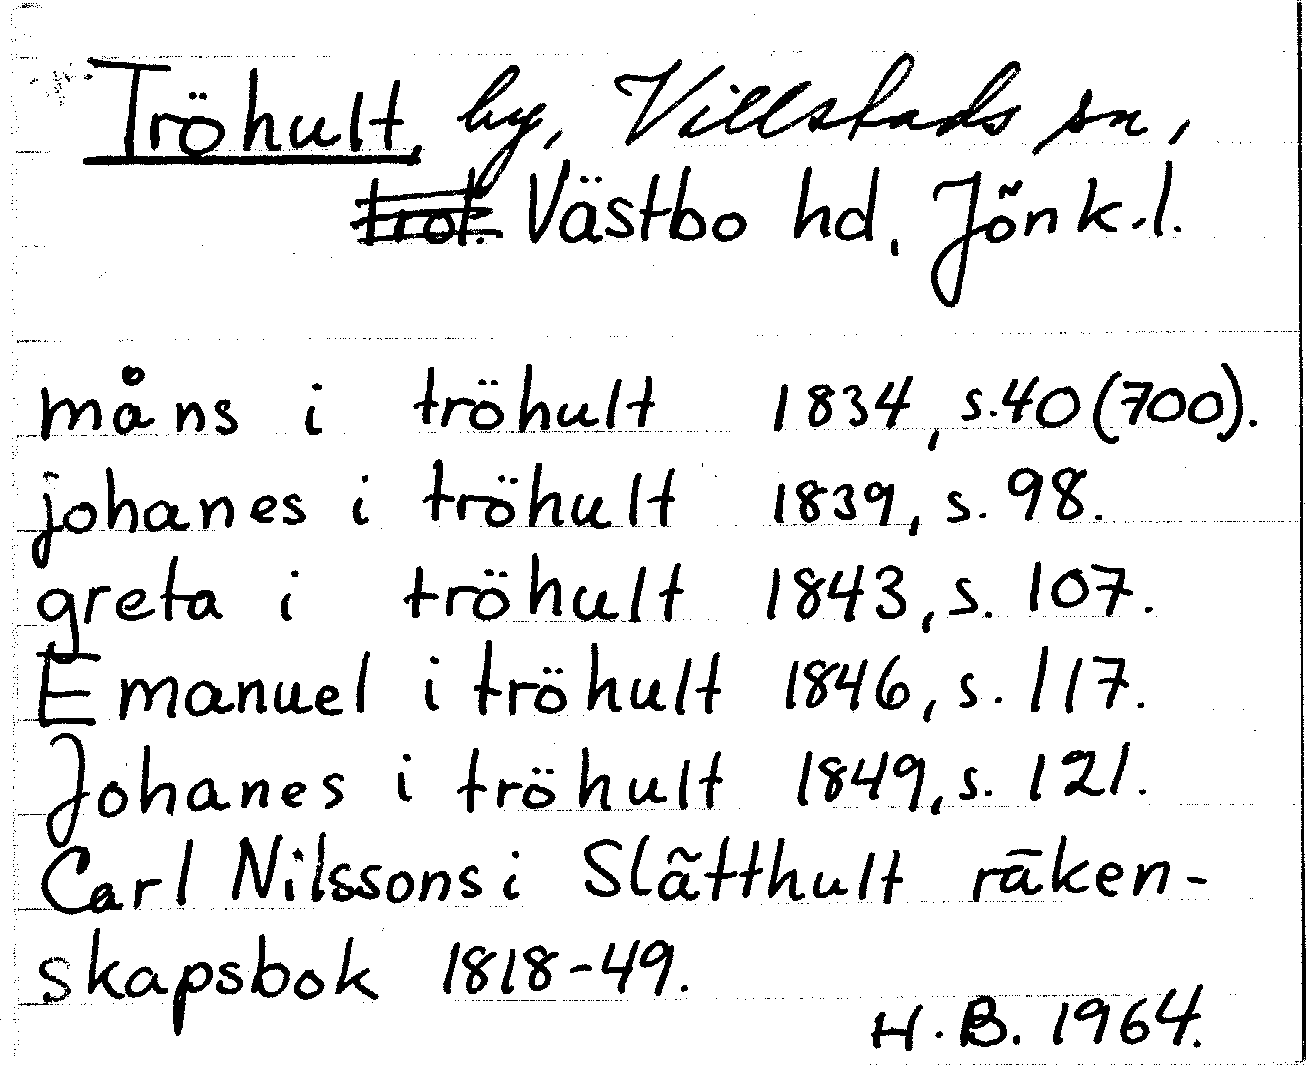 Tröhult, by, Villstads sn,
Västbo hd, Jönk.l.
måns i tröhult 1834, s.40(700).
johanes i tröhult 1839, s. 98.
greta i tröhult 1843, s. 107.
Emanuel i tröhult 1846, s. 117.
Johanes i tröhult 1849, s. 121.
Carl Nilssons i Slätthult räken-
skapsbok 1818-49.
H.B. 1964.